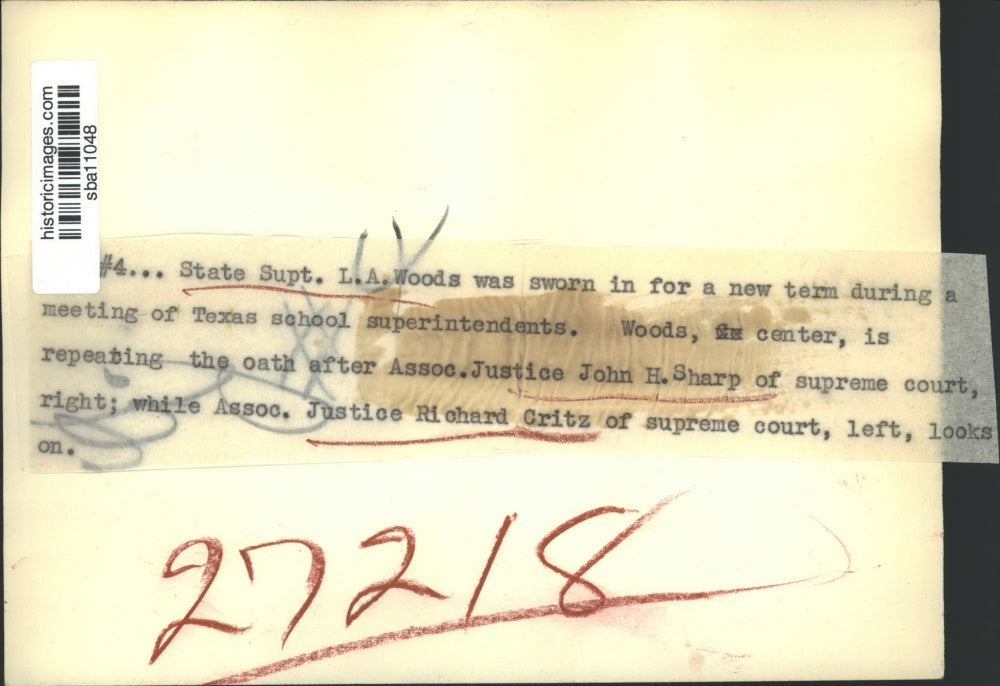 historicimages.com
sba11048
#4... State Supt. L.A.Woods was sworn in for a new term during a
meeting of Texas school superintendents. Woods, center, is
repeating the oath after Assoc.Justice John H.Sharp of supreme court,
right; while Assoc. Justice Richard Critz of supreme court, left, looks
on.
27218